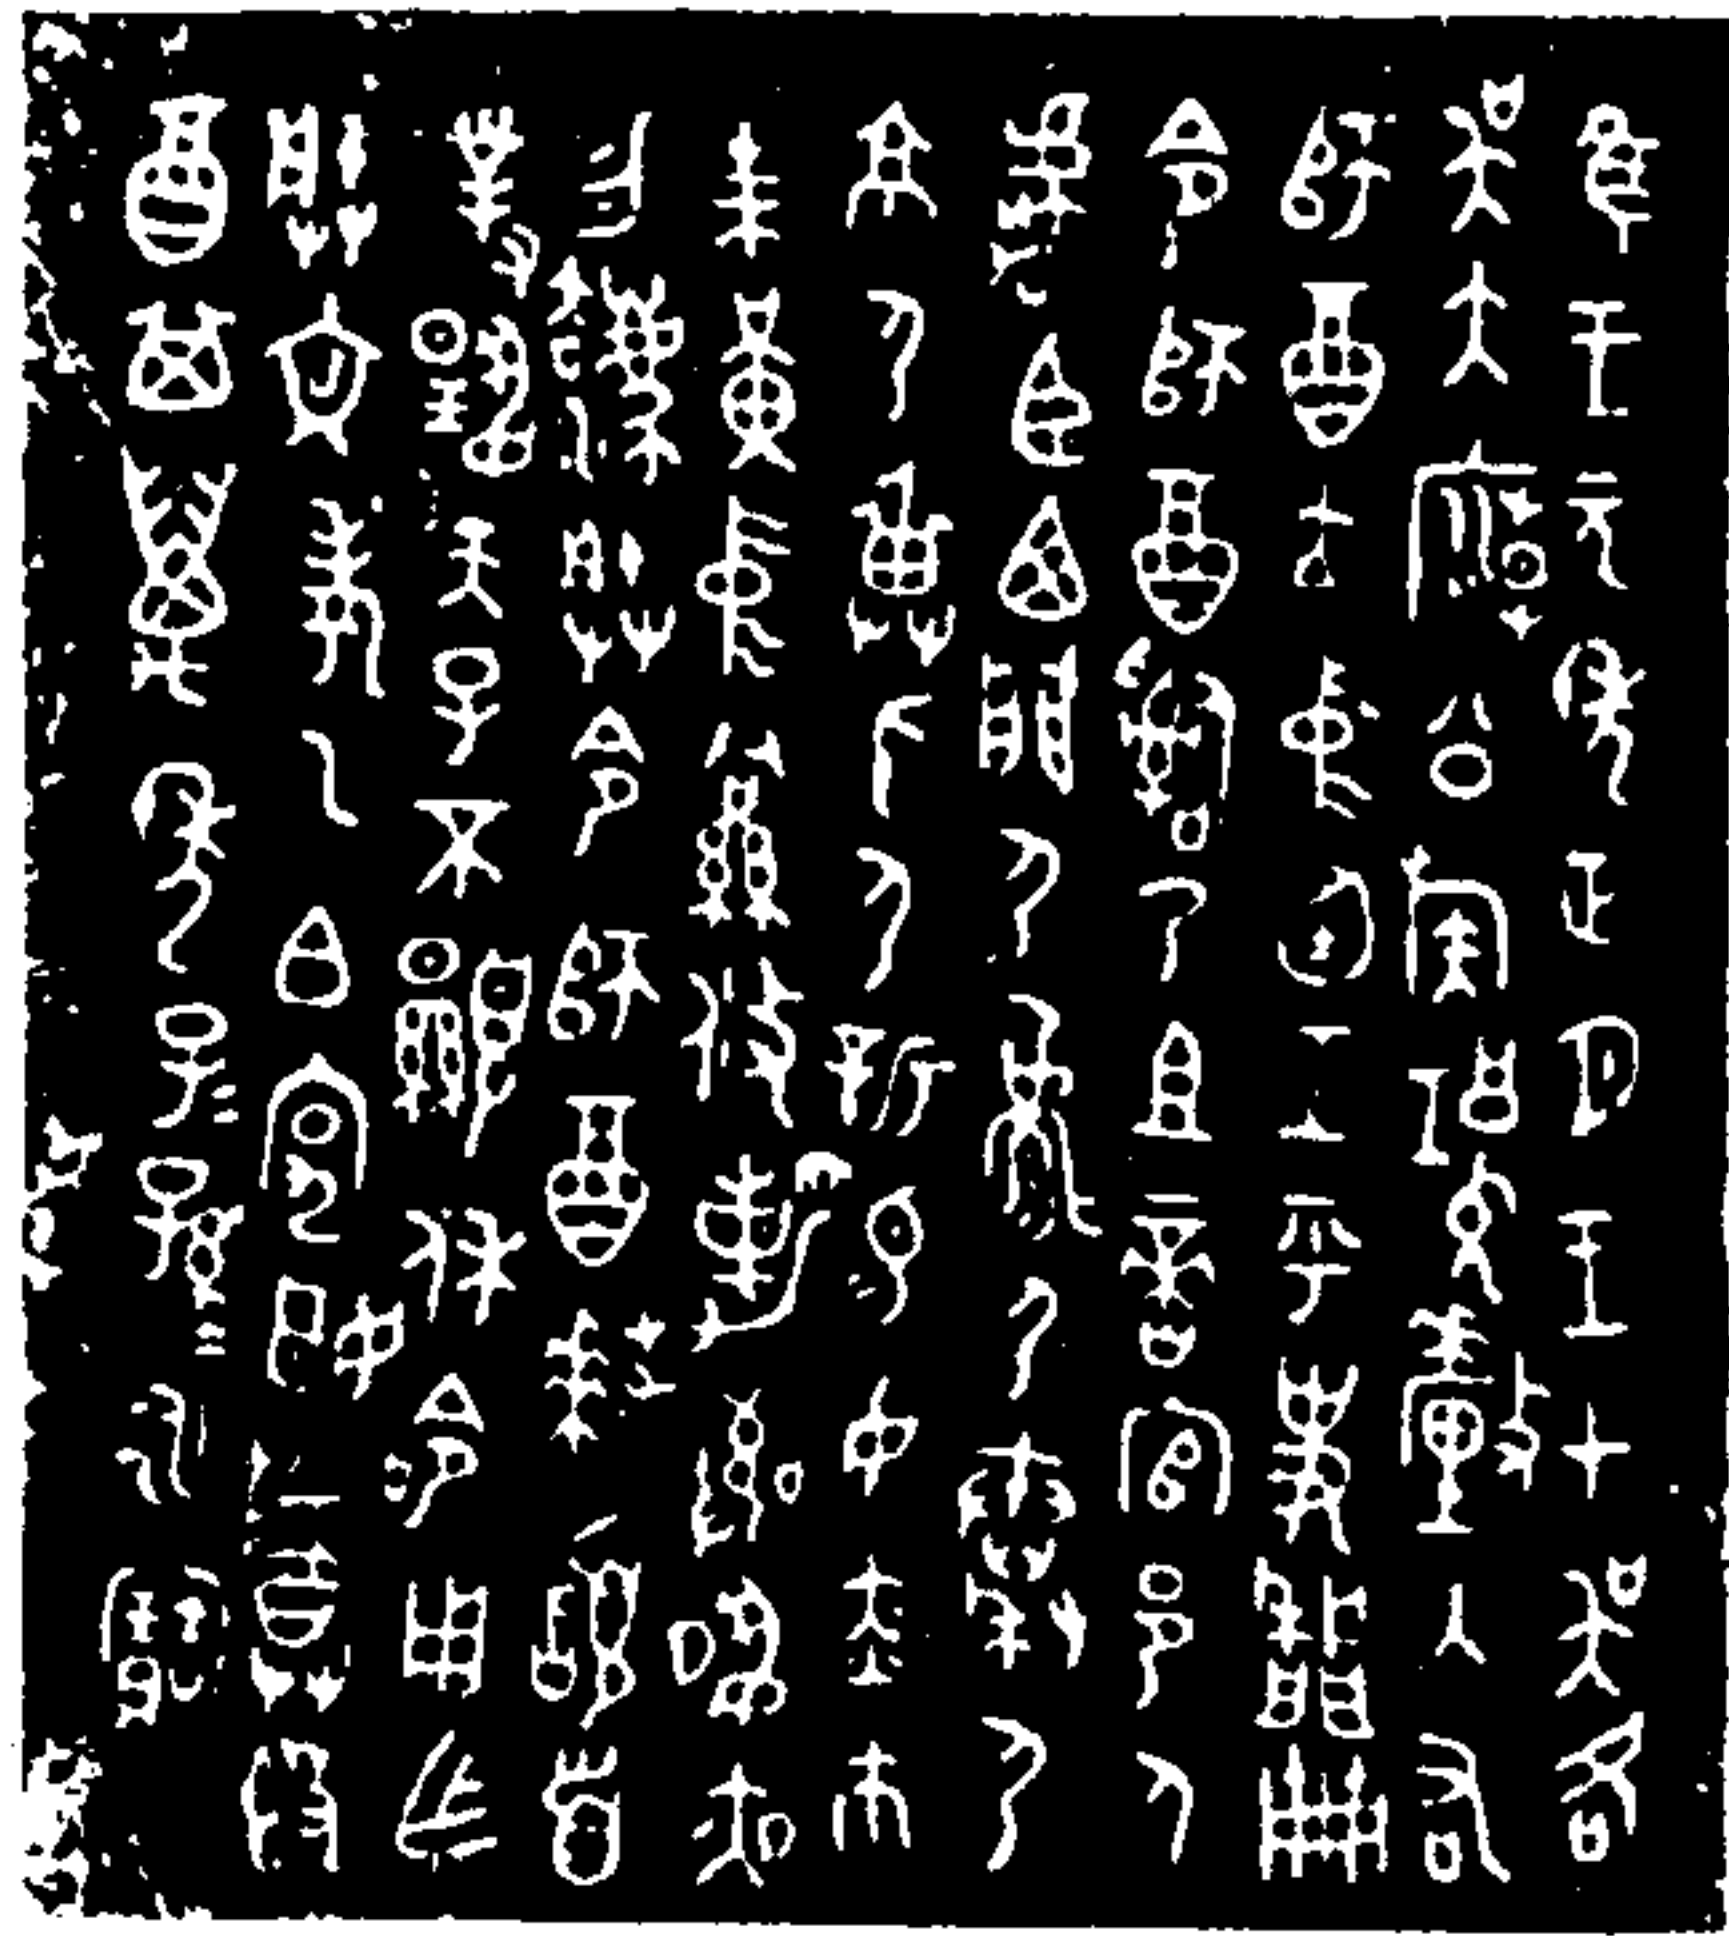 隹王元年正月王才吳各
吳大廟公族𤮺釐入右
師酉立中廷王乎史牆冊
命師酉𤔲乃且啻官邑人
虎臣西門尸𩁹尸秦尸
京尸弁身尸新易女赤市
朱黃中絅攸勒敬夙夜
勿灋朕令師酉拜𩒨首
對揚天子不顯休令用乍
朕文考乙白宄姬尊𣪘
酉其萬年子子孫孫永寶用